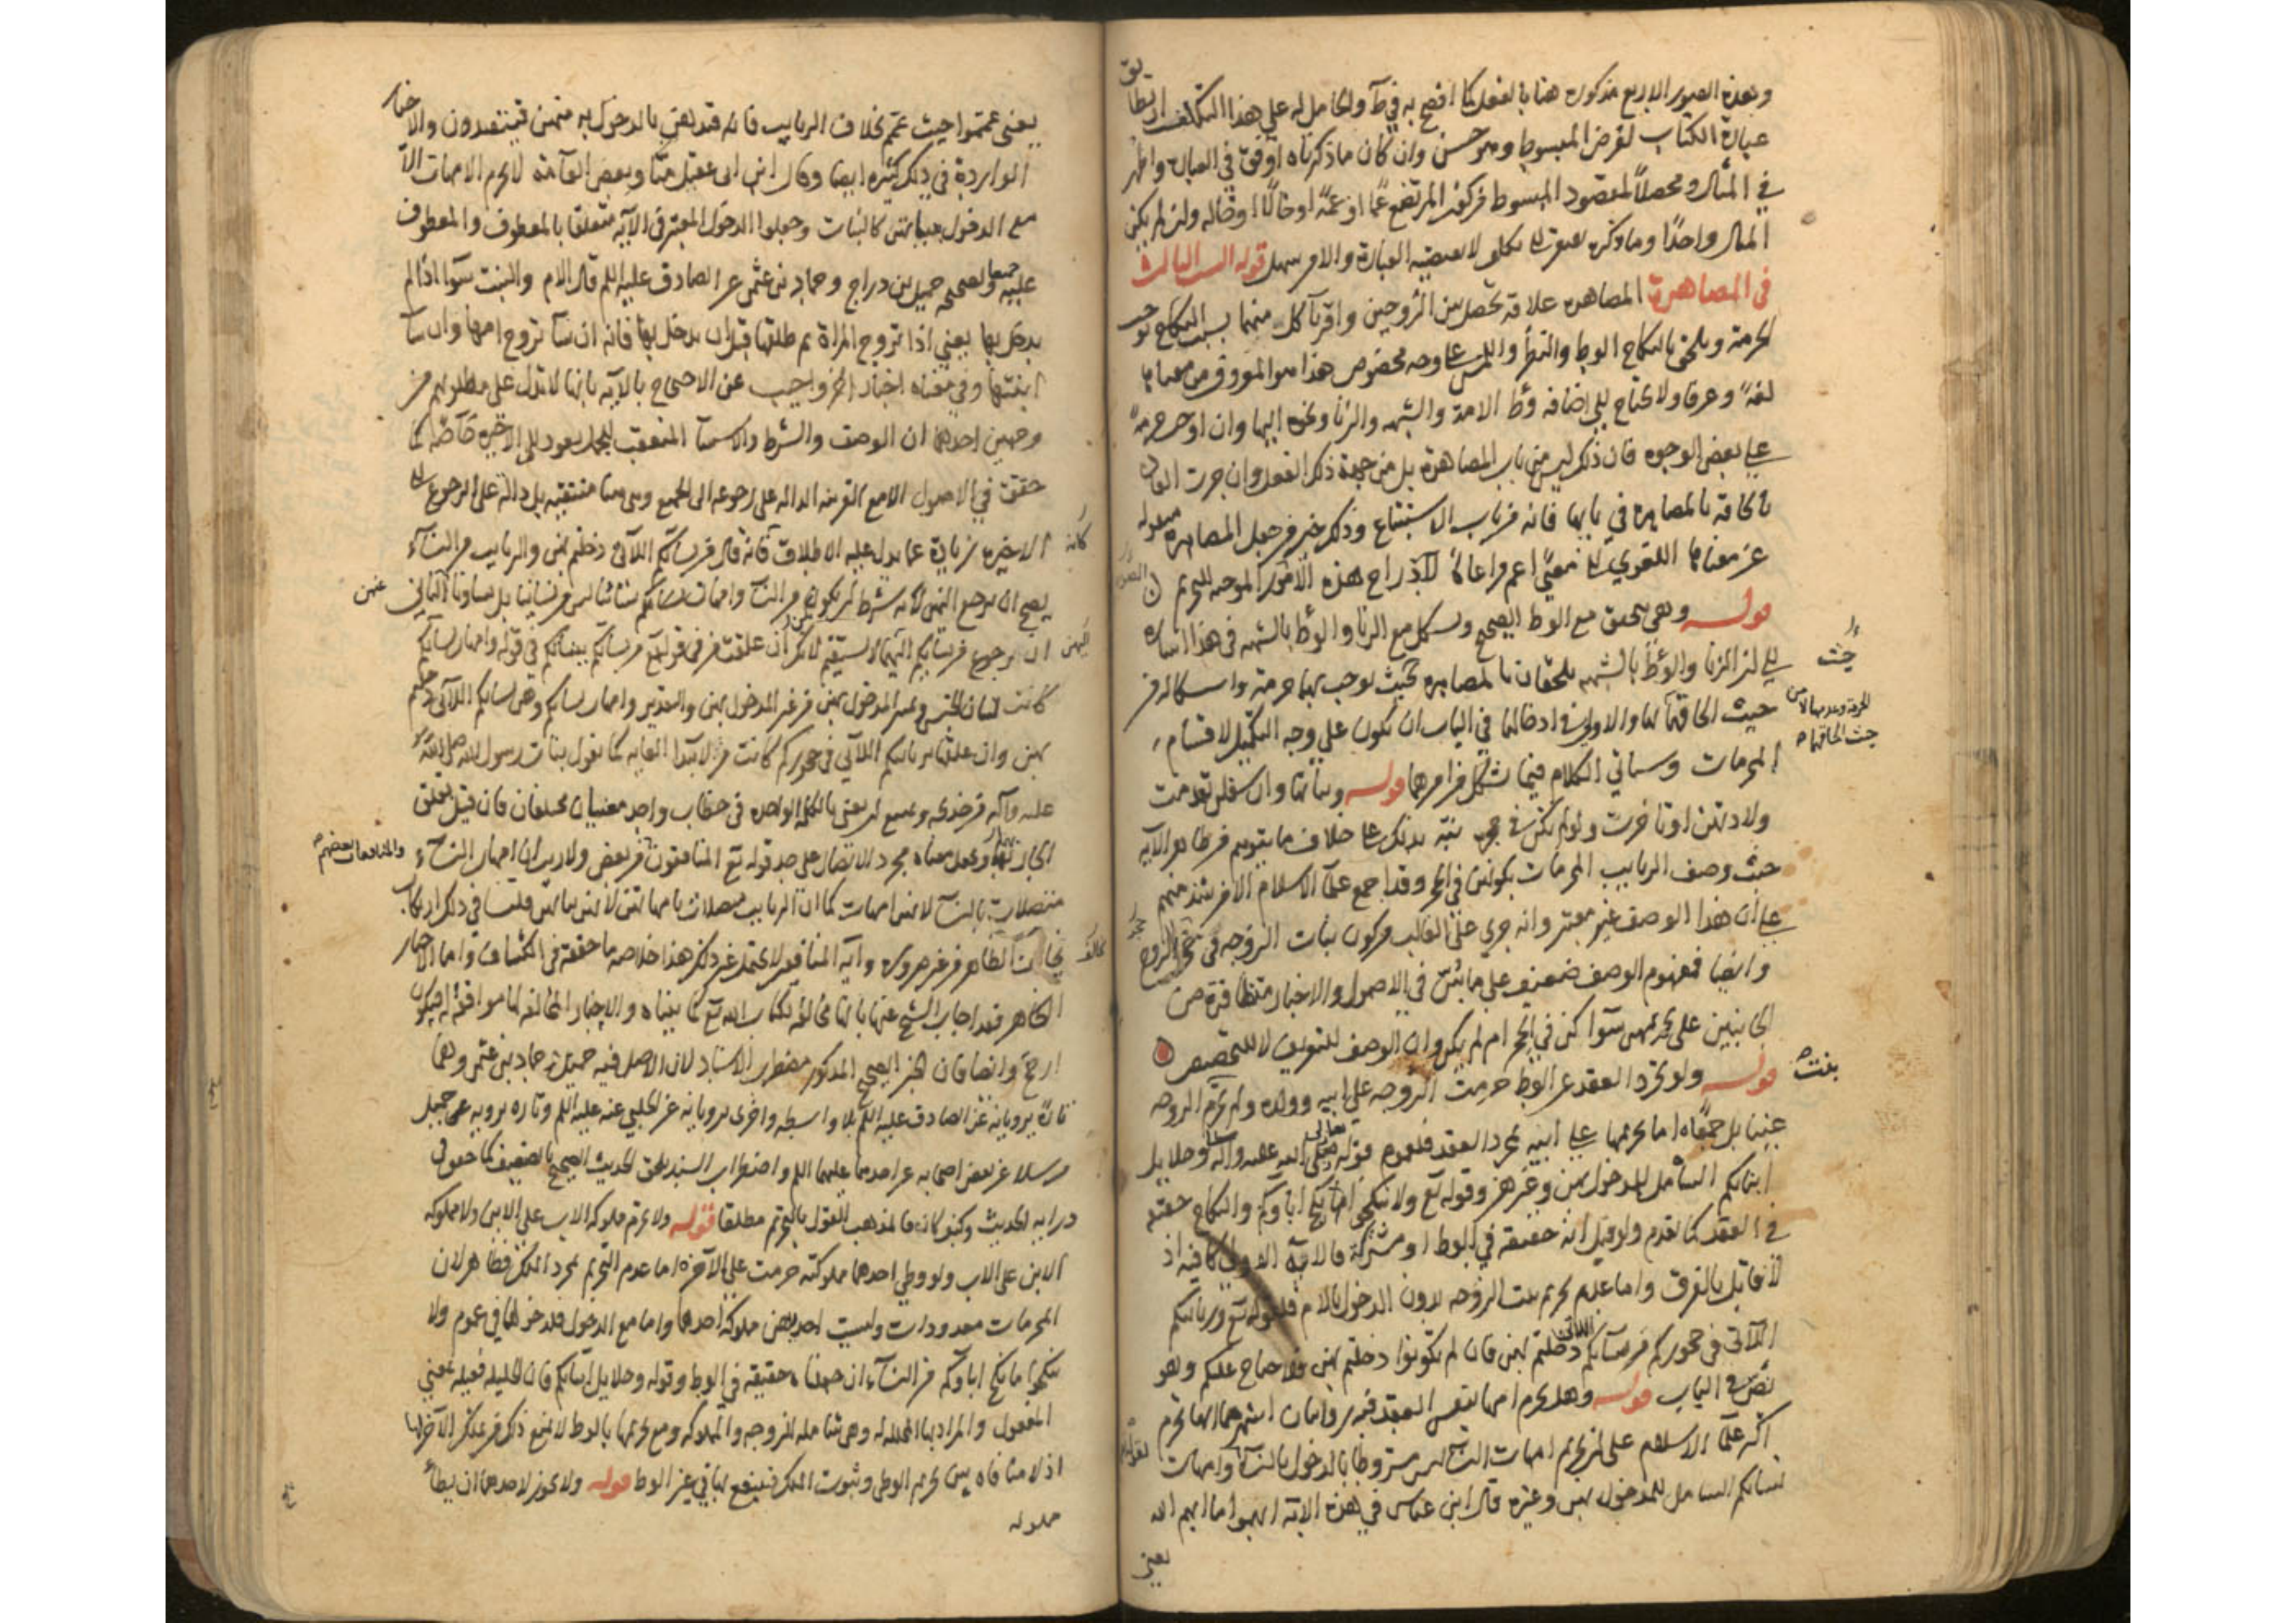 وهذه الصور الاربع مذكورة هنا بالفعل كما افصح به في ط والحامل له على هذا التكلف
عبارة الكتاب لغرض المبسوط وهو حسن وان كان ما ذكرناه اوفق في العبارة واظهر
في المثال ومحصلا لمقصود المبسوط من كون المرتضع عما او عمة او خالا او خاله وان لم يكن
المثال واحدا وما ذكره لا تقتضيه العبارة والامر سهل قوله السبب الثالث
في المصاهرة المصاهرة علاقة تحصل بين الزوجين واقرباء كل منهما بسبب النكاح توجب
الحرمة ويلحق بالنكاح الوطء والنظر واللمس على وجه مخصوص هذا هو المعروف من معناها
لغة وعرفا ولا يحتاج الى اضافة وطء الامة والشبهه والزنا ونحوه اليها وان اوجب حرمة
على بعض الوجوه فان ذلك ليس من باب المصاهرة بل من جهة ذلك الفعل وان جرت العادة
بالحاقه بالمصاهرة في بابها فانه من باب الاستتباع وذلك خير من جعل المصاهرة منقوله
عن معناها اللغوي الى معنى اعم مراعاة لادراج هذه الامور الموجبه للتحريم
قوله وهي تتحقق مع الوطء الصحيح ويشكل مع الزنا والوطء بالشبهه في هذا اشارة
الى ان الزنا والوطء بالشبهه ملحقان بالمصاهرة بحيث توجب بهما حرمة واشكاله من
حيث الحاقهما بها والاولى في ادخالها في الباب ان تكون على وجه التكميل لاقسام
المحرمات وسياتي الكلام فيما شكل من امرهما قوله وبناتها وان سفلن تقدمت
ولادتهن او تاخرت ولو لم تكن في حجره نبه بذلك على خلاف ما يتوهم من ظاهر الآيه
حيث وصف الربايب المحرمات بكونهن في الحجر وقد اجمع علماء الاسلام الا من شذ منهم
على ان هذا الوصف غير معتبر وانه جرى على الغالب من كون بنات الزوجه في حجر الزوج
وايضا فمفهوم الوصف ضعيف على ما بين في الاصول والاخبار متظافرة من
الجانبين على تحريمهن سواء كن في الحجر ام لم يكن وان الوصف للتعريف لا للتخصيص
قوله ولو تجرد العقد عن الوطء حرمت الزوجه على ابيه وولده ولم تحرم بنت الزوجه
عينا بل جمعا اما تحريمها على ابيه بمجرد العقد فلعموم قوله تعالى وحلايل
ابنائكم الشامل للمدخول بهن وغيرهن وقوله تع ولا تنكحوا ما نكح اباؤكم والنكاح حقيقة
في العقد كما تقدم ولو قيل انه حقيقة في الوطء او مشترك فالآية الاولى كافيه اذ
لا قائل بالفرق واما عدم تحريم بنت الزوجه بدون الدخول بالام فلقوله تع وربائبكم
اللاتي في حجوركم من نسائكم اللاتي دخلتم بهن فان لم تكونوا دخلتم بهن فلا جناح عليكم وهو
نص في الباب قوله وهل تحرم امها بنفس العقد فيه روايتان اشهرهما انها تحرم
اكثر علماء الاسلام على ان تحريم امهات النساء ليس مشروطا بالدخول بالنساء لقوله وامهات
نسائكم الشامل للمدخول بهن وغيره قال ابن عباس في هذه الاية ابهموا ما ابهم الله
يعني
يعني عمموا حيث عمم بخلاف الربايب فانه قد قيدهن بالدخول بامهن فيتقيدون والاخبار
الواردة في ذلك كثيرة ايضا وقال ابن ابي عقيل منا وبعض العامة لا تحرم الامهات الا
مع الدخول ببناتهن كالبنات وجعلوا الدخول المعتبر في الآية متعلقا بالمعطوف والمعطوف
عليه جميعا ولصحيح جميل بن دراج وحماد بن عثمن عن الصادق عليه السلم قال الام والبنت سواء اذا لم
يدخل بها يعني اذا تزوج المراة ثم طلقها قبل ان يدخل بها فانه ان شاء تزوج امها وان شاء
ابنتها وفي معناه اخبار اخر واجيب عن الاحتجاج بالآيه بانها لا تدل على مطلوبهم من
وجهين احدهما ان الوصف والشرط والاستثناء المتعقب للجمل يعود الى الاخيرة خاصة كما
حقق في الاصول الا مع القرينه الداله على رجوعه الى الجميع وهي هنا منتفيه بل دالة على الرجوع الى
الاخيرة زيادة عما يدل عليه الاطلاق فانه قال من نسائكم اللاتي دخلتم بهن والربايب من النساء
يصح ان يرجع اليهن لانه شرط ان يكون من النساء وامهات نسائكم ليس من نسائنا بل نساؤنا
ان رجوع من نسائكم اليهما لا يستقيم لانك ان علقت من في قوله تع من نسائكم بنسائكم في قوله وامهات نسائكم
كانت لبيان الجنس وتمييز المدخول بهن من غير المدخول بهن والتقدير وامهات نسائكم وهن نسائكم اللاتي دخلتم
بهن وان علقتها بربائبكم اللاتي في حجوركم كانت من لابتداء الغايه كما تقول بنات رسول الله صلى الله
عليه وآله من خديجه ويمتنع ان يعنى بالكلمة الواحدة في خطاب واحد معنيان مختلفان فان قيل يتعلق
الجار بهما ويجعل معناه مجرد الاتصال على حد قوله تع المنافقون والمنافقات بعضهم من بعض ولا ريب ان امهات النساء
متصلات بالنساء لانهن امهات كما ان الربايب متصلات بامهاتهن لانهن بناتهن قلنا في ذلك ارتكاب
مخالفة الظاهر من غير ضرورة وآية المنافقين لا تحتمل غير ذلك هذا خلاصة ما حققه في الكشاف واما الاخبار
الظاهر فقد اجاب الشيخ عنها بانها مخالفه لكتاب الله تع كما بيناه والاخبار المخالفه لها موافقه له فيكون
ارجح وايضا فان الخبر الصحيح المذكور مضطرب الاسناد لان الاصل فيه جميل وحماد بن عثمن وهما
تارة يرويانه عن الصادق عليه السلم بلا واسطه واخرى يرويانه عن الحلبي عنه عليه السلم وتاره يرويه عن جميل
مرسلا عن بعض اصحابه عن احدهما عليهما السلم واضطراب السند يلحق الحديث الصحيح بالضعيف كما حقق في
دراية الحديث وكيف كان فالمذهب القول بالتحريم مطلقا قوله ولا تحرم مملوكة الاب على الابن ولا مملوكه
الابن على الاب ولو وطى احدهما مملوكته حرمت على الآخر اما عدم التحريم بمجرد الملك فظاهر لان
المحرمات معدودات وليست احديهن مملوكة احدهما واما مع الدخول فلدخولها في عموم ولا
تنكحوا ما نكح اباؤكم من النساء ان جعلناه حقيقة في الوطء وقوله وحلايل ابنائكم فان الحليلة فعيله بمعنى
المفعول والمراد بها المحلله له وهي شامله للزوجه والمملوكه ومع تحريمها بالوطء لا يمنع ذلك من ملك الآخر لها
اذ لا منافاة بين تحريم الوطى وثبوت الملك فينتفع بها في غير الوطء قوله ولا يجوز لاحدهما ان يطأ
مملوكه